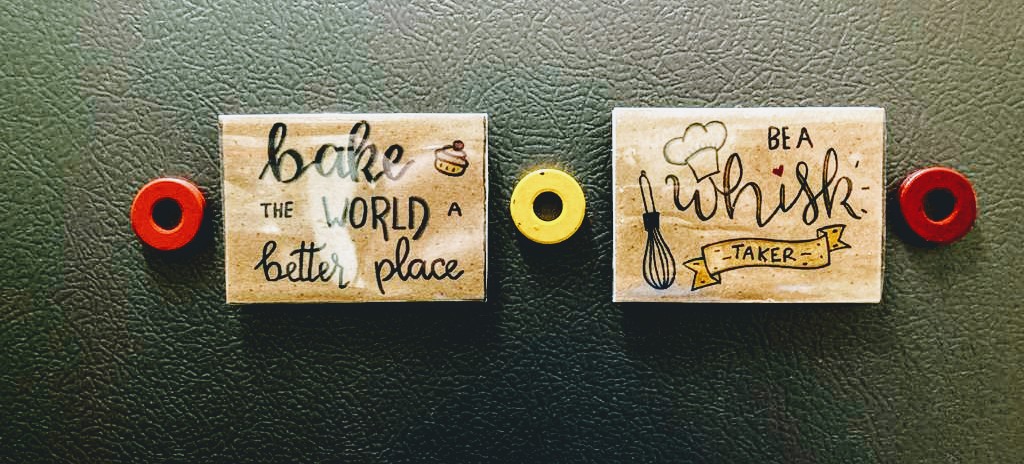 bake
THE WORLD A
better place
BE A
whisk
- TAKER -